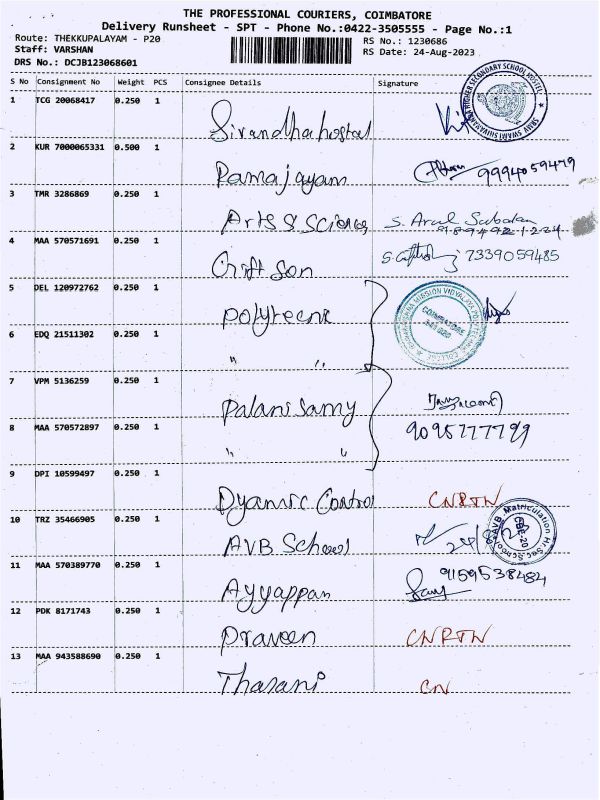 THE PROFESSIONAL COURIERS, COIMBATORE
Delivery Runsheet - SPT - Phone No.:0422-3505555 - Page No.:1
Route: THEKKUPALAYAM - P20 RS No.: 1230686
Staff: VARSHAN RS Date: 24-Aug-2023
DRS No.: DCJB123068601
S No Consignment No Weight PCS Consignee Details Signature
1 TCG 20068417 0.250 1
Sivandha hostel
2 KUR 7000065331 0.500 1
Ramajayam 9994059479
3 TMR 3286869 0.250 1
Arts & Science S. Arul Sabatan
4 MAA 570571691 0.250 1
Crift Son 7339059485
5 DEL 120972762 0.250 1
polytecnic
COIMBATORE
6 EDQ 21511302 0.250 1
" "
7 VPM 5136259 0.250 1
Palanisamy
8 MAA 570572897 0.250 1
9095777799
" "
9 DPI 10599497 0.250 1
Dyamic Control CNRTN
10 TRZ 35466905 0.250 1
AVB School 24/8/20
AVB Matriculation Hr Sec School
CBE-20
11 MAA 570389770 0.250 1
Ayyappan 9159538484
12 PDK 8171743 0.250 1
Praveen CNRTN
13 MAA 943588690 0.250 1
Tharani CN